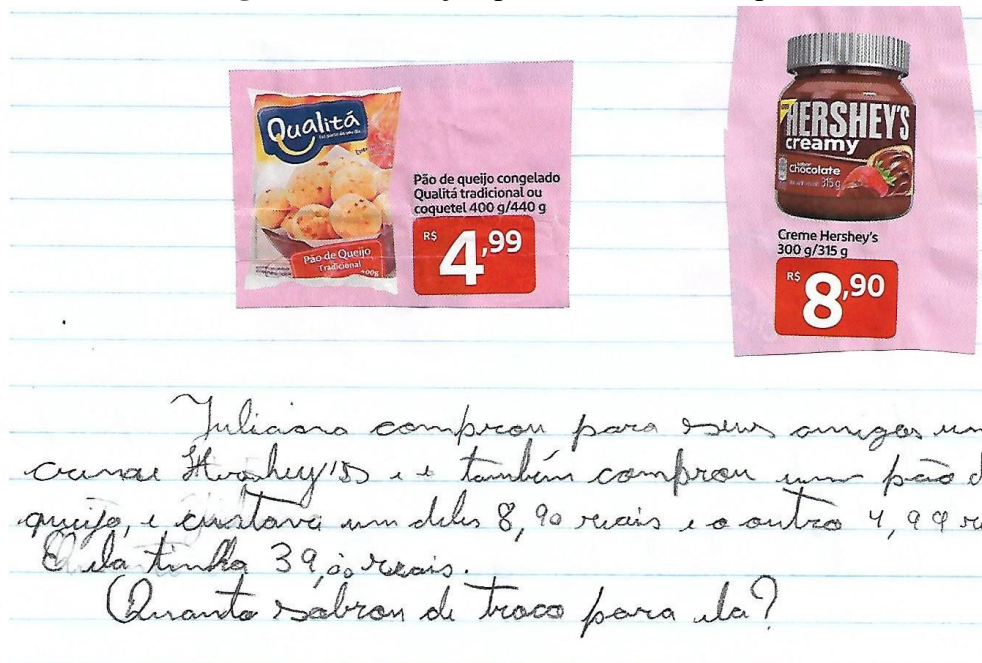 Qualitá
Pão de Queijo
Tradicional
Pão de queijo congelado
Qualitá tradicional ou
coquetel 400 g/440 g
R$ 4,99
HERSHEY'S
creamy
Chocolate
315g
Creme Hershey's
300 g/315 g
R$ 8,90
Juliana comprou para seus amigos um
creme Hershey's e também comprou um pão d
queijo, e custava um deles 8,90 reais e o outro 4,99 re
E ela tinha 39,00 reais.
Quanto sobrou de troco para ela?